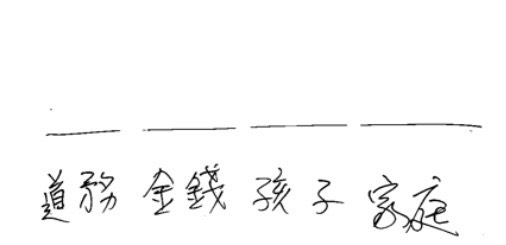 道務 金錢 孩子 家庭